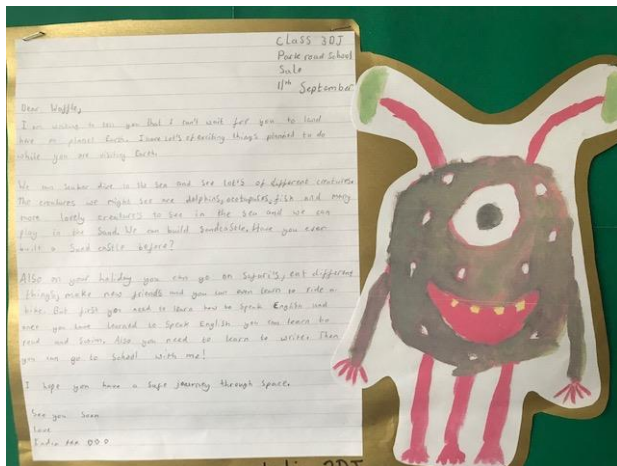 Class 3DJ
Park road School
Sale
11th September
Dear Waffle,
I am writing to tell you that I can't wait for you to land
here on planet Earth. I have lot's of exciting things planned to do
while you are visiting Earth.
We can scuba dive in the sea and see lot's of different creatures.
The creatures we might see are dolphins, octopuses, fish and many
more lovely creatures to see in the sea and we can
play in the sand. We can build sandcastle. Have you ever
built a sand castle before?
Also on your holiday you can go on safari's, eat different
things, make new friends and you can even learn to ride a
bike. But first you need to learn how to speak English and
once you have learned to speak English you can learn to
read and listen. Also you need to learn to write. Then
you can go to School with me!
I hope you have a safe journey through space.
See you soon
Love
India
3DJ